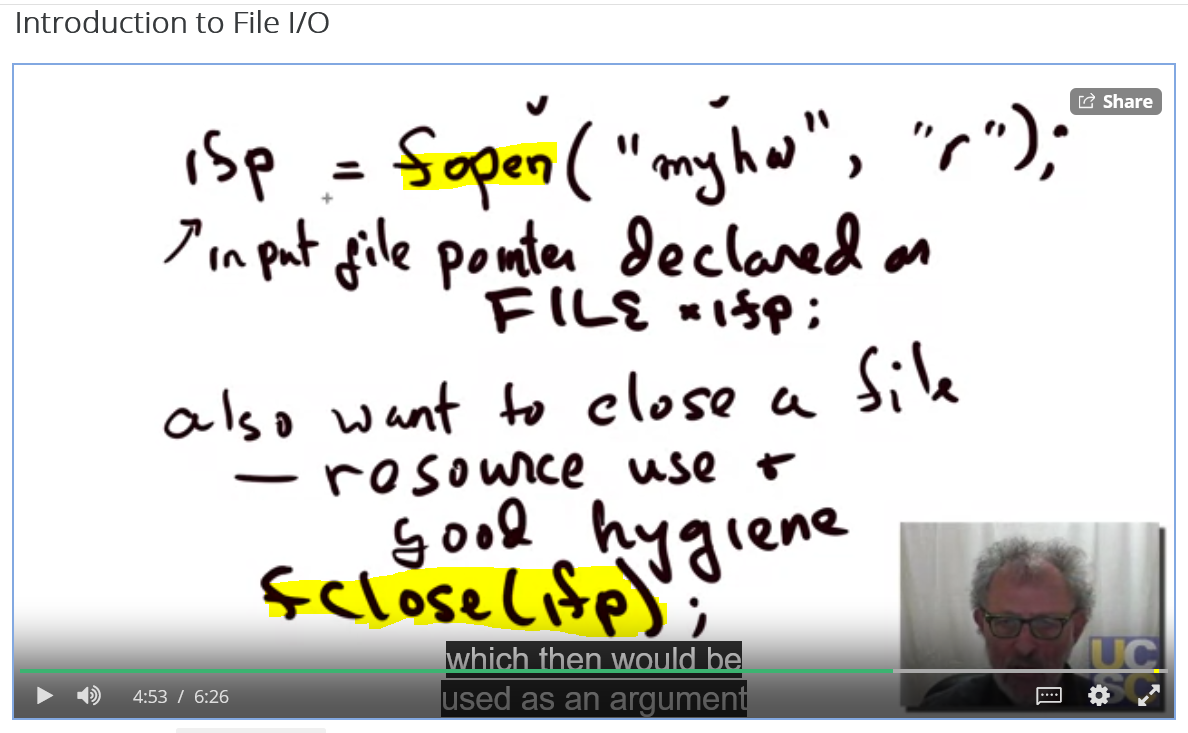 Introduction to File I/O
Share
ifp = fopen("myhw", "r");
↗input file pointer declared as
FILE *ifp;
also want to close a file
— resource use &
good hygiene
fclose(ifp);
which then would be
used as an argument
4:53 / 6:26
UC
SC